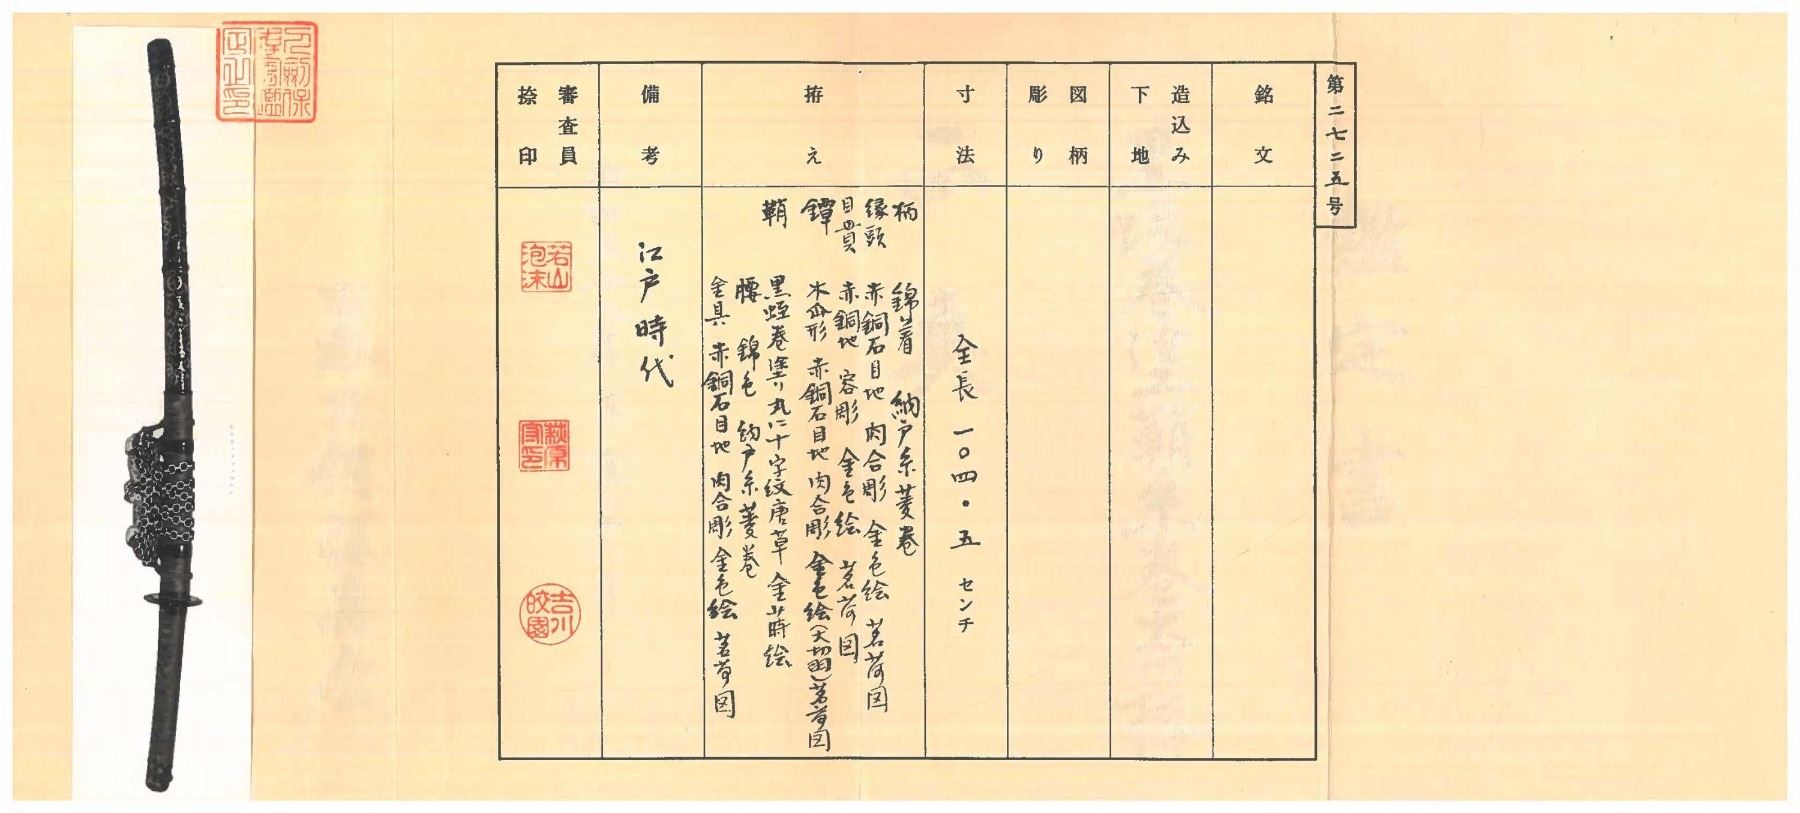 第二七二五号
銘文
造込み
下地
図柄
彫り
寸法
全長 一〇四・五 センチ
拵え
柄 錦着 納戸糸菱巻
縁頭 赤銅石目地 肉合彫 金色絵 茗荷図
目貫 赤銅地 容彫 金色絵 茗荷図
鐔 木瓜形 赤銅石目地 肉合彫 金色絵(大切羽)茗荷図
鞘 黒蛭巻塗り丸に十字紋唐草金蒔絵
腰 錦包 納戸糸菱巻
金具 赤銅石目地 肉合彫 金色絵 茗荷図
備考
江戸時代
審査員
捺印
若山
泡沫
萩原
守印
吉川
皎園